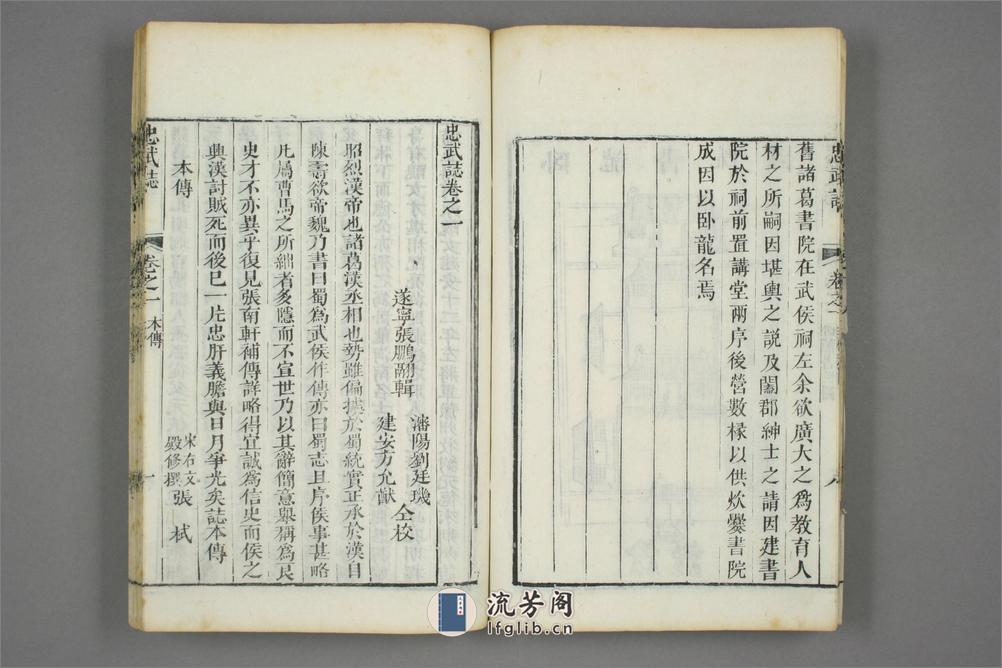 舊諸葛書院在武侯祠左余欲廣大之爲教育人
材之所嗣因堪輿之説及闔郡紳士之請因建書
院於祠前置講堂兩序後營數椽以供炊爨書院
成因以卧龍名焉
忠武誌卷之一
遂寧張鵬翮輯
瀋陽劉廷璣
建安方允猷
仝校
昭烈漢帝也諸葛漢丞相也勢雖偏據於蜀統實正承於漢自
陳壽欲帝魏乃書曰蜀爲武侯作傳亦曰蜀志且序侯事甚略
凡屬曹馬之所絀者多隱而不宣世乃以其辭簡意舉稱爲良
史才不亦異乎復見張南軒補傳詳略得宜誠爲信史而侯之
興漢討賊死而後已一片忠肝義膽與日月爭光矣誌本傳
本傳
宋右文
殿修撰
張栻
忠武誌
卷之一
本傳
一
流芳阁
lfglib.cn